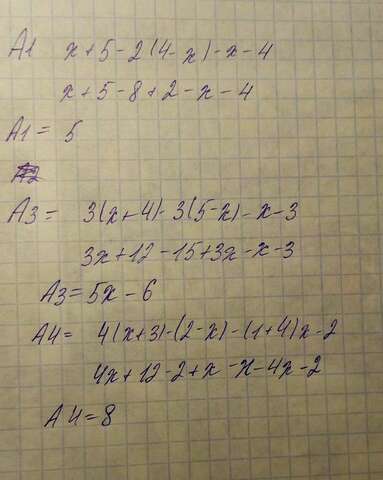 A1 x+5-2(4-x)-x-4
x+5-8+2-x-4
A1= 5
A3= 3(x+4)-3(5-x)-x-3
3x+12-15+3x-x-3
A3=5x-6
A4= 4(x+3)-(2-x)-(1+4)x-2
4x+12-2+x-x-4x-2
A4=8